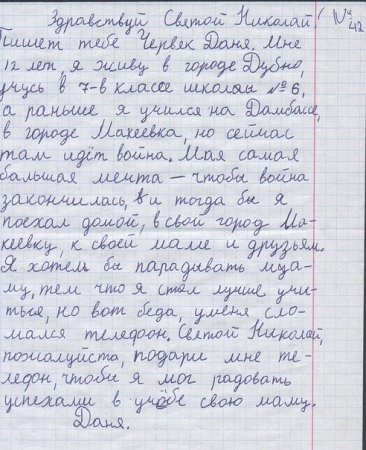 Здравствуй Святой Николай!
№ 42
Пишет тебе Червек Даня. Мне
12 лет, я живу в городе Дубно,
учусь в 7-в классе школы №6,
а раньше я учился на Дамбасе,
в городе Макеевка, но сейчас
там идёт война. Мая самая
большая мечта – чтобы война
закончилась, и тогда бы я
поехал домой, в свой город Ма-
кеевку, к своей маме и друзьям.
Я хотел бы парадывать
му, тем что я стал лучше учи-
ться, но вот беда, у меня сло-
мался телефон. Святой Николай,
пожалуйста, подари мне те-
лефон, чтобы я мог радовать
успехами в учёбе свою маму.
Даня.